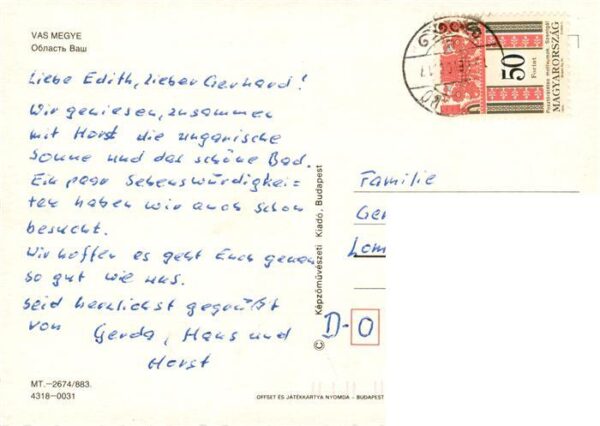 VAS MEGYE
Область Ваш
Liebe Edith, lieber Gerhard!
Wir geniesen, zusammen
mit Horst die ungarische
Sonne und das schöne Bad.
Ein paar Sehenswürdigkei=
ten haben wir auch schon
besucht.
Wir hoffen es geht Euch genau
so gut wie uns.
Seid herzlichst gegrüßt
von Gerda, Hans und
Horst
MT.—2674/883.
4318-0031
© Képzőművészeti Kiadó, Budapest
OFFSET ÉS JÁTÉKKÁRTYA NYOMDA – BUDAPEST
50
Forint
MAGYARORSZÁG
Familie
Ger
Lom
D-O